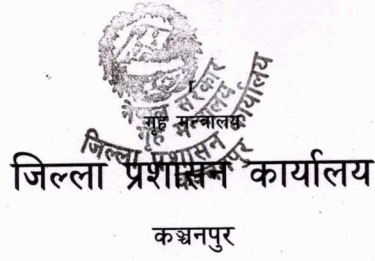 नेपाल सरकार
गृह मन्त्रालय
जिल्ला प्रशासन कार्यालय
गृह मन्त्रालय
जिल्ला प्रशासन कार्यालय
कञ्चनपुर